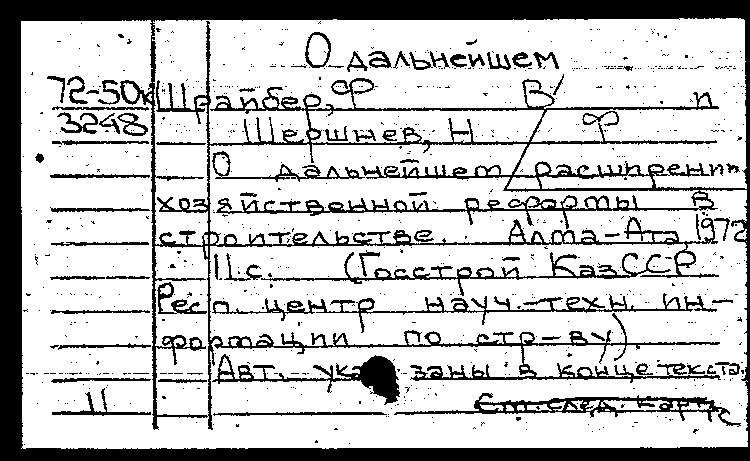 О дальнейшем
72-50к Шрайбер, Ф В п
3248 Шершнев, Н Ф
О дальнейшем расширении
хозяйственной реформы в
строительстве. Алма-Ата, 1972
11с. (Госстрой КазССР
Респ. центр науч.-техн. ин-
формации по стр-ву).
Авт. указаны в конце текста.
11 См. след. карт.